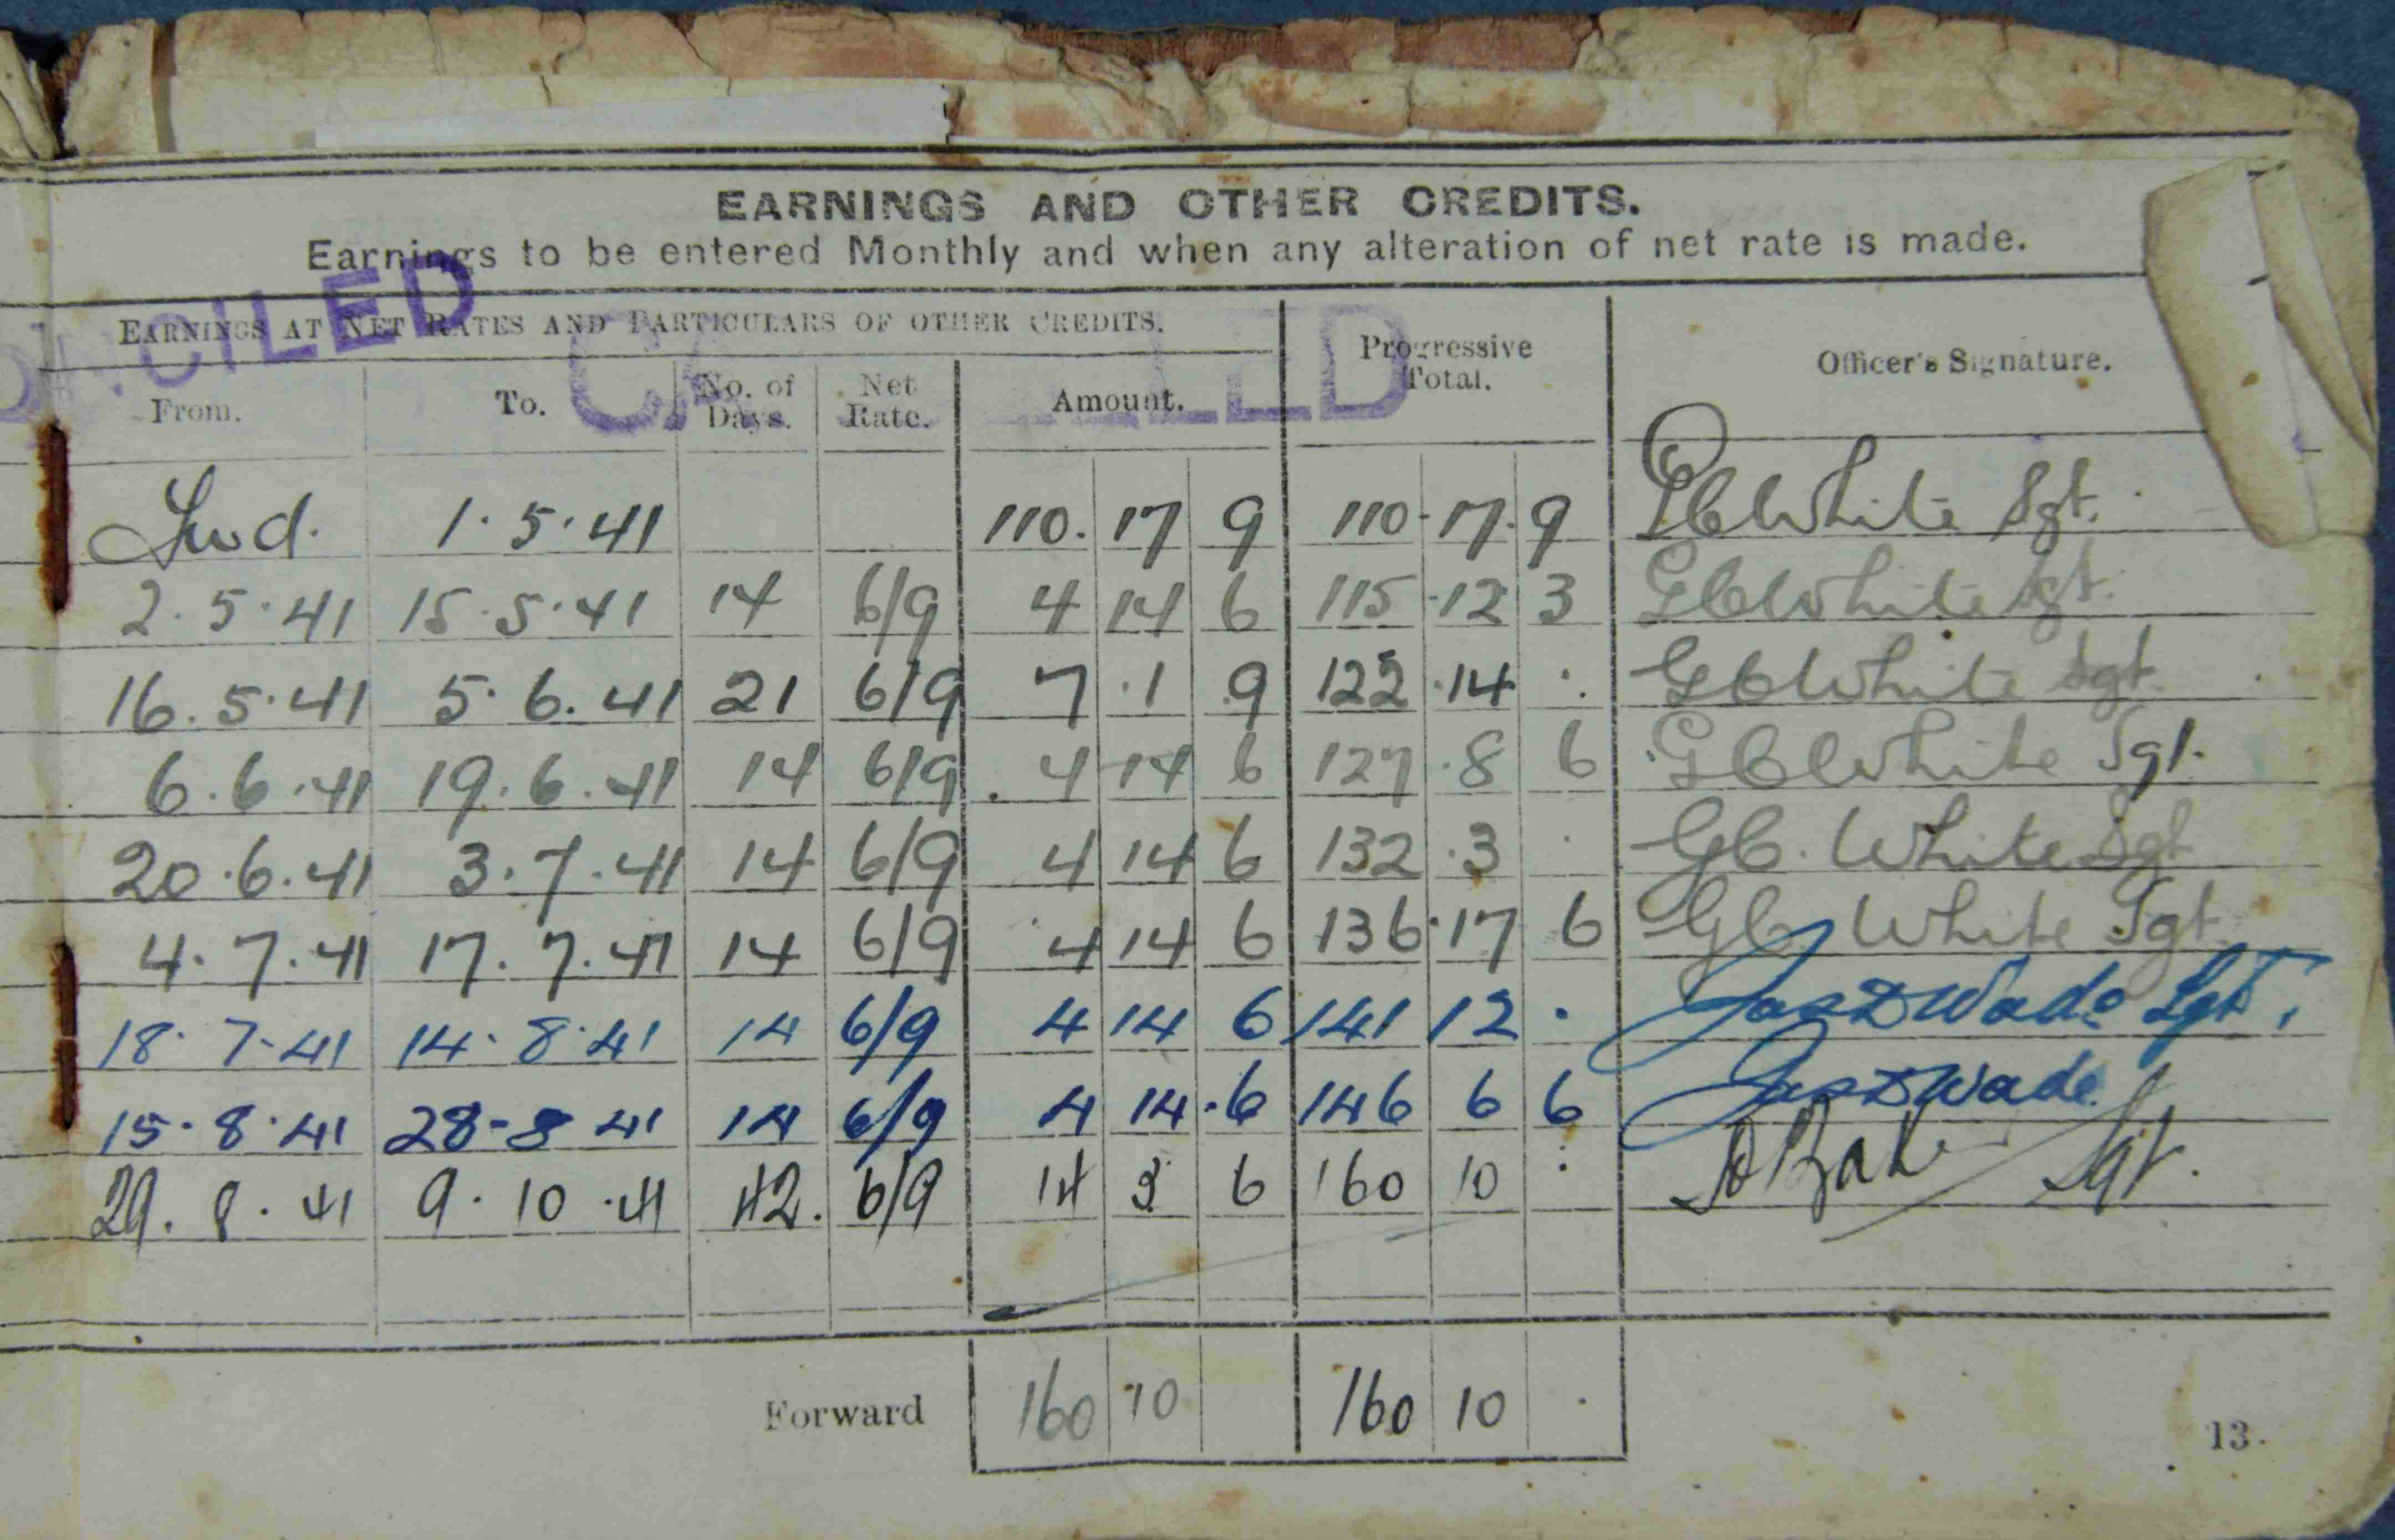 EARNINGS AND OTHER CREDITS.
Earnings to be entered Monthly and when any alteration of net rate is made.
ONCILED
EARNINGS AT NET RATES AND PARTICULARS OF OTHER CREDITS.
Progressive Total.
Officer's Signature.
From. To. No. of Days. Net Rate. Amount.
Fwd. 1.5.41 110. 17 9 110-17-9 G C White Sgt.
2.5.41 15.5.41 14 6/9 4 14 6 115.12 3 G C White Sgt.
16.5.41 5.6.41 21 6/9 7.1 9 122.14 . G C White Sgt.
6.6.41 19.6.41 14 6/9 4 14 6 127.8 6 G C White Sgt.
20.6.41 3.7.41 14 6/9 4 14 6 132.3 . G C. White Sgt
4.7.41 17.7.41 14 6/9 4 14 6 136.17 6 G C White Sgt
18.7.41 14.8.41 14 6/9 4 14 6 141 12 . Jas D Wade Sgt.
15.8.41 28-8 41 14 6/9 4 14.6 146 6 6 Jas D Wade
29.8.41 9.10.41 42. 6/9 14 3 6 160 10 : Sgt.
Forward 160 10 160 10 .
13.